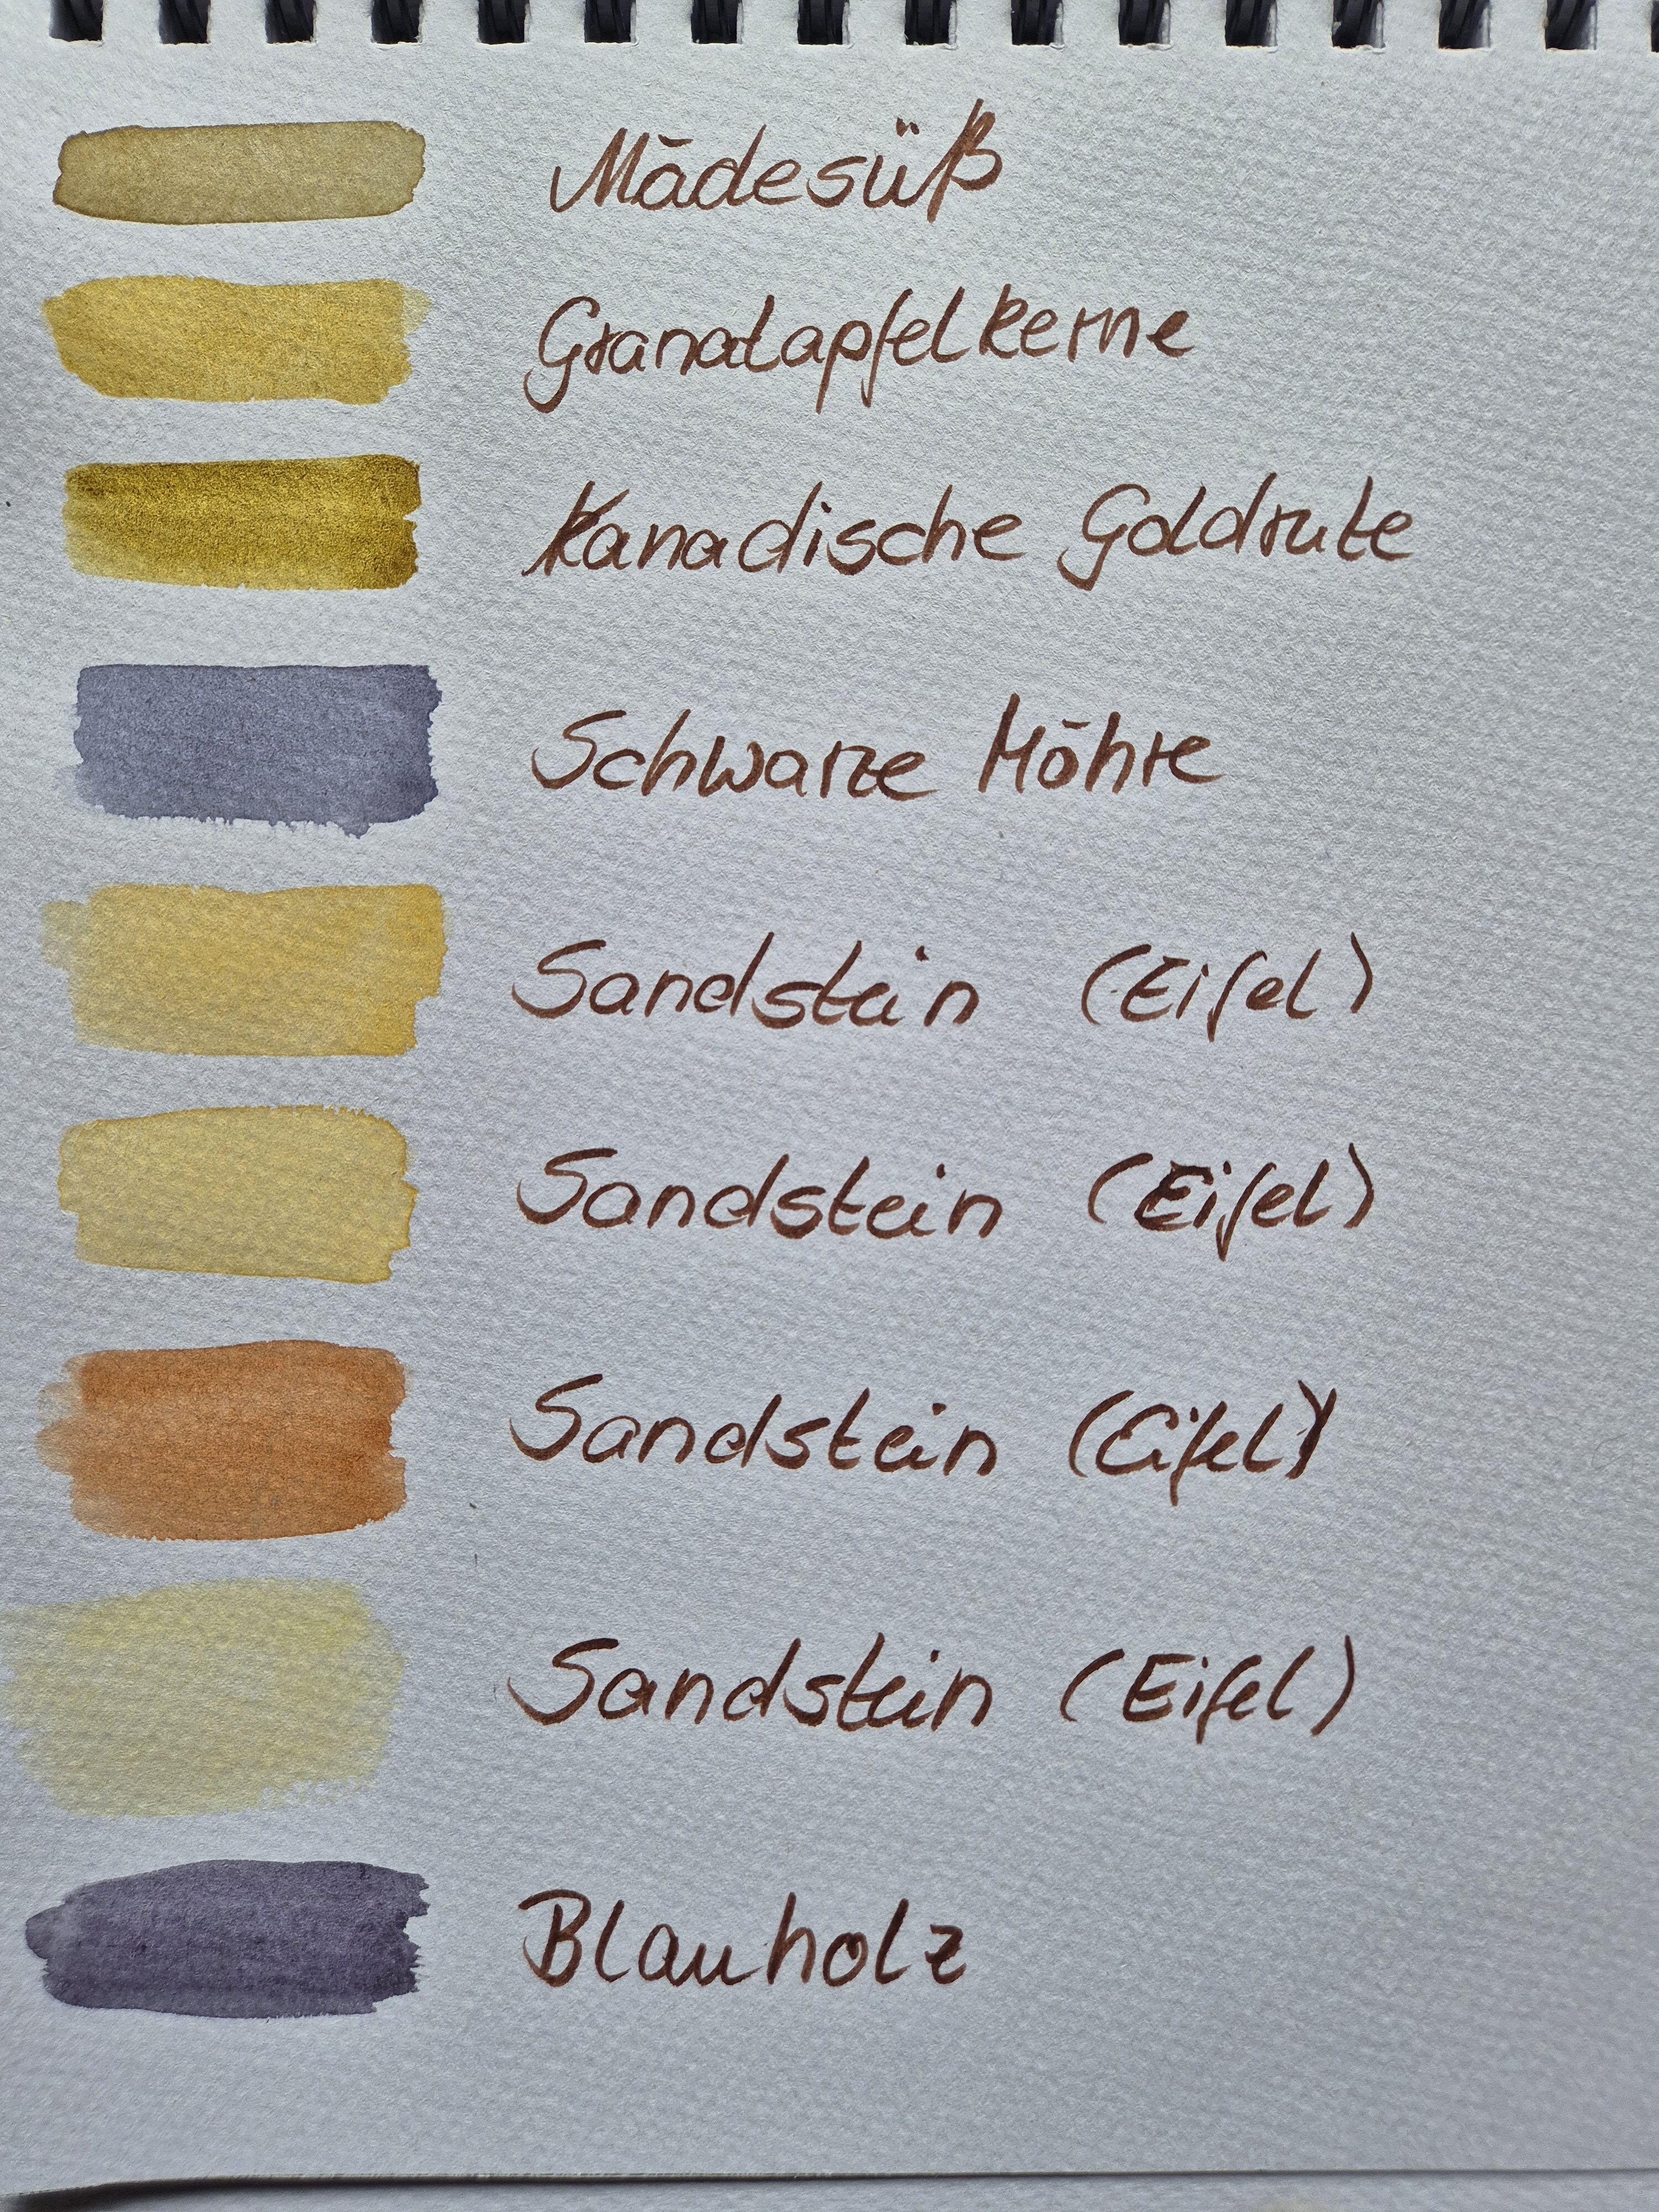 Mädesüß
Granatapfelkerne
Kanadische Goldrute
Schwarze Möhre
Sandstein (Eifel)
Sandstein (Eifel)
Sandstein (Eifel)
Sandstein (Eifel)
Blauholz